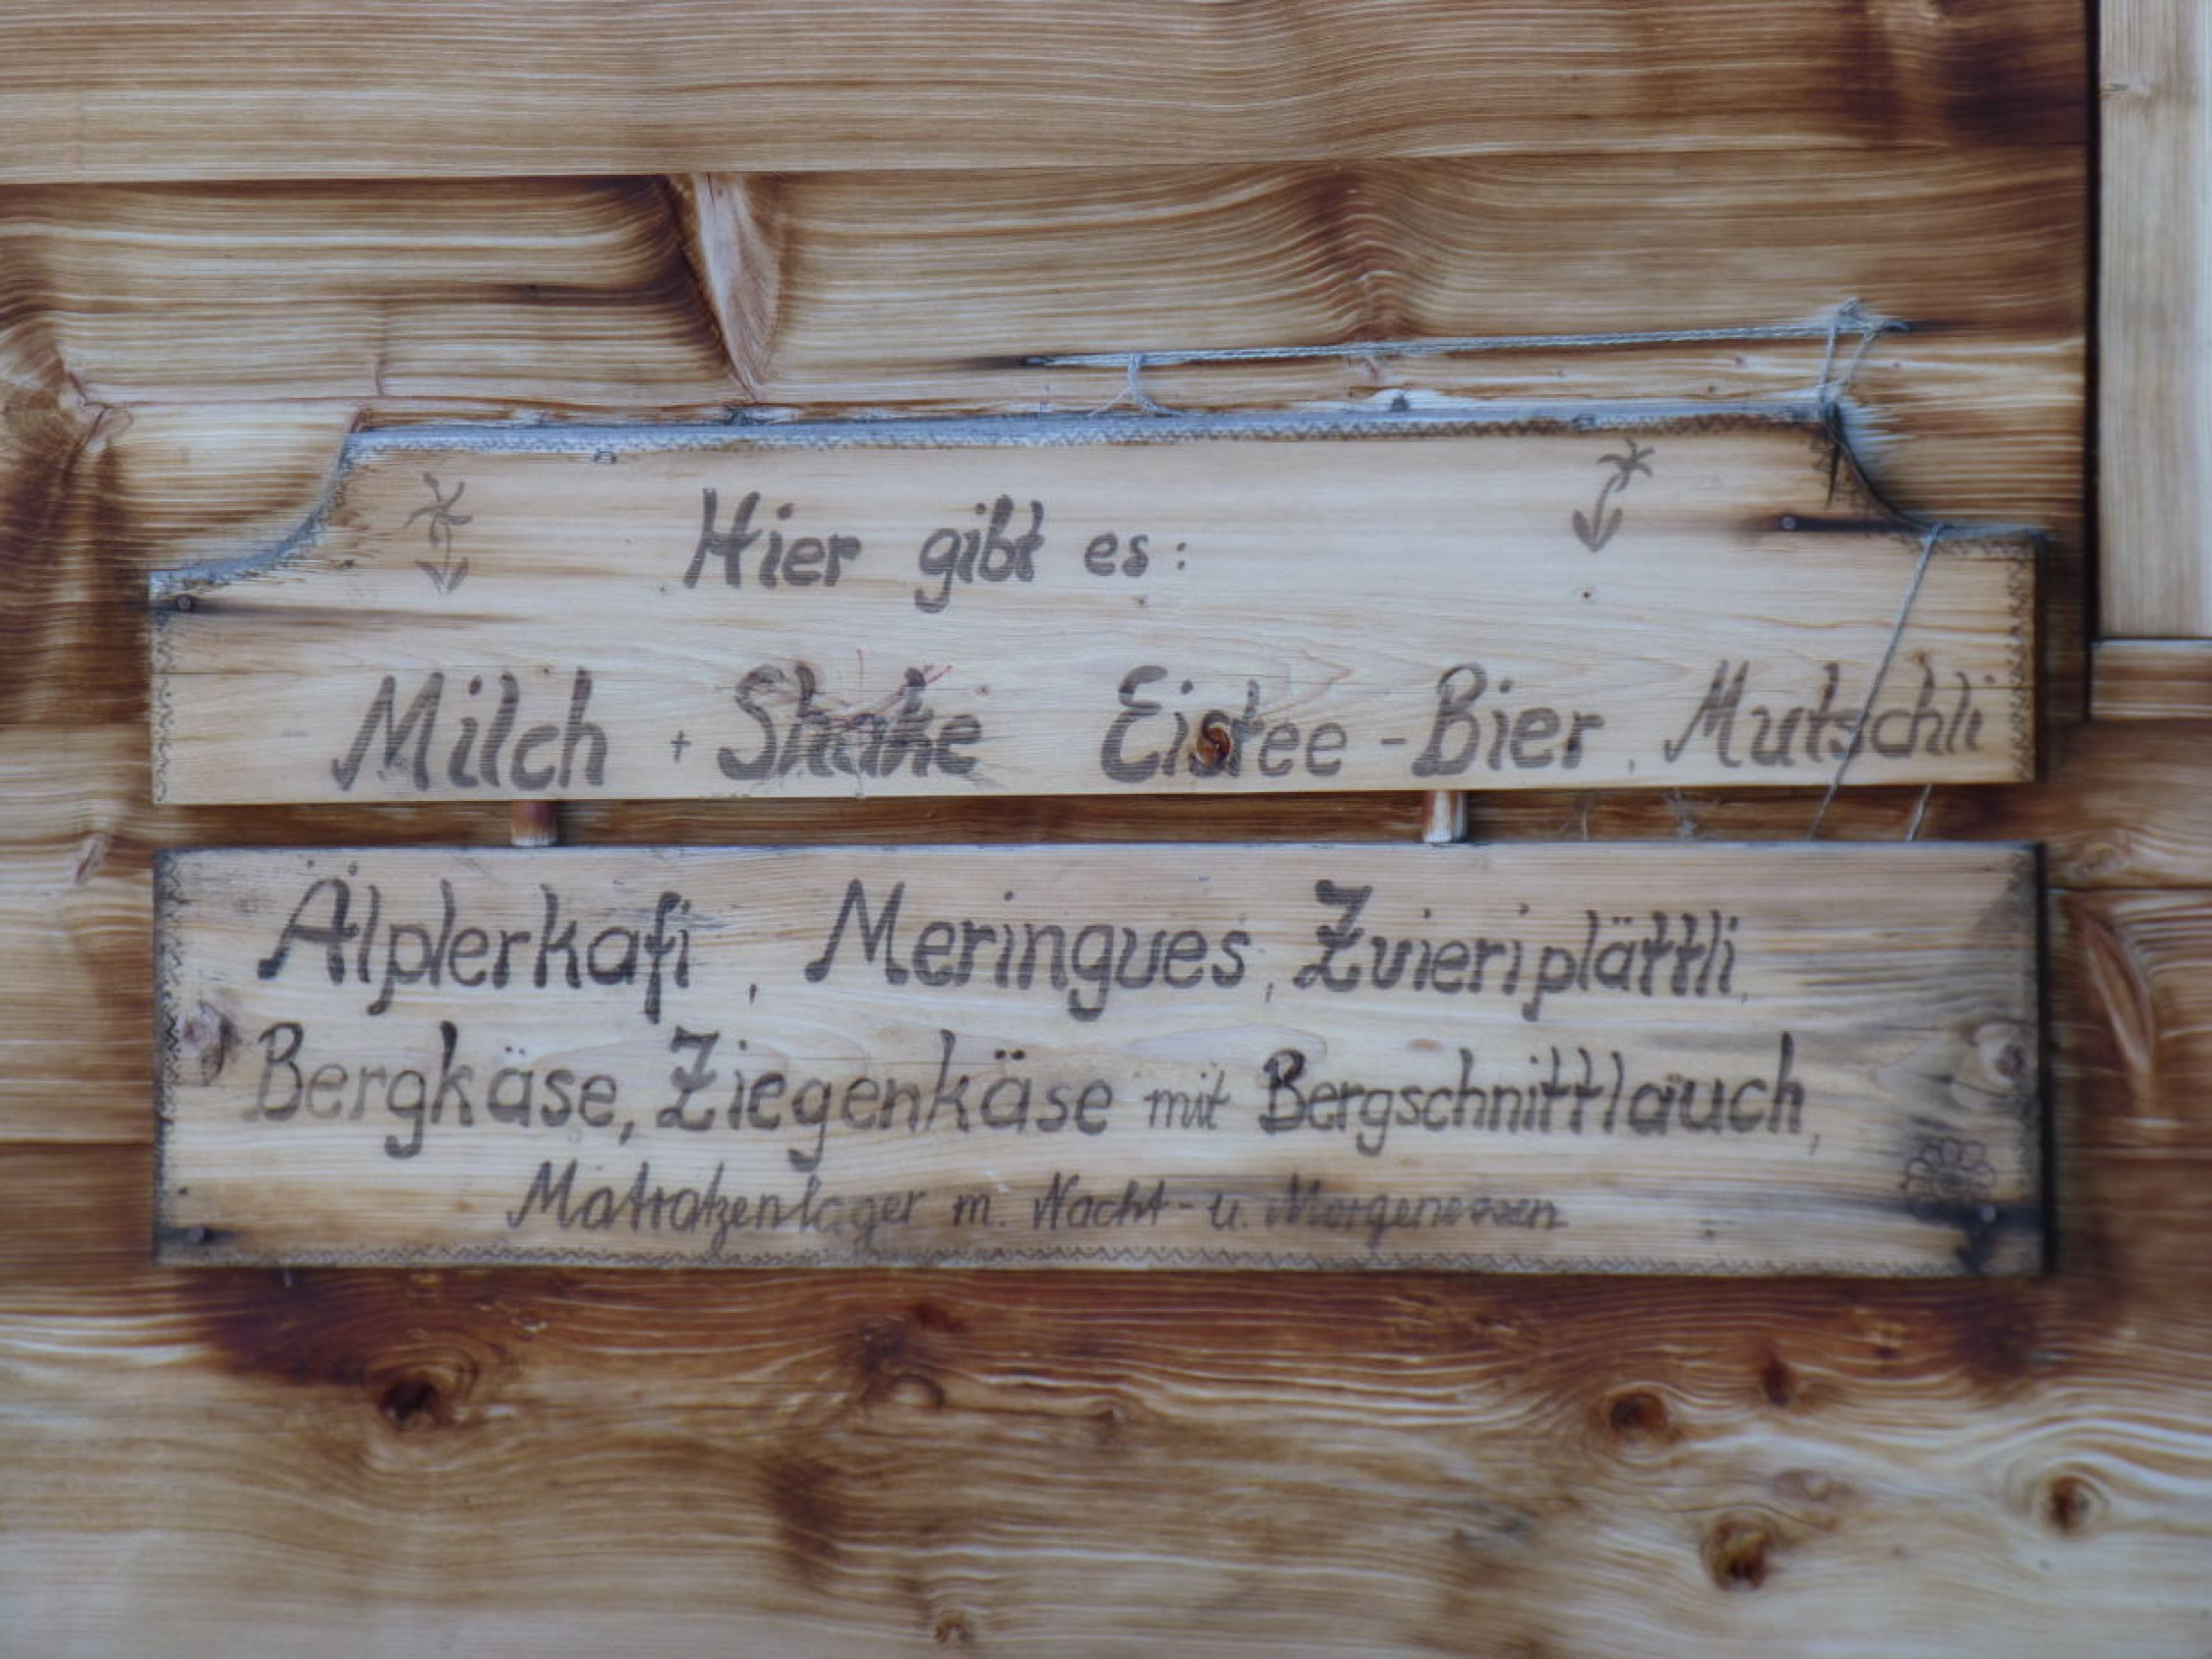 Hier gibt es:
Milch + Shake Eistee - Bier, Mutschli
Älplerkafi, Meringues, Zvieriplättli,
Bergkäse, Ziegenkäse mit Bergschnittlauch,
Matratzenlager m. Nacht- u. Morgenessen